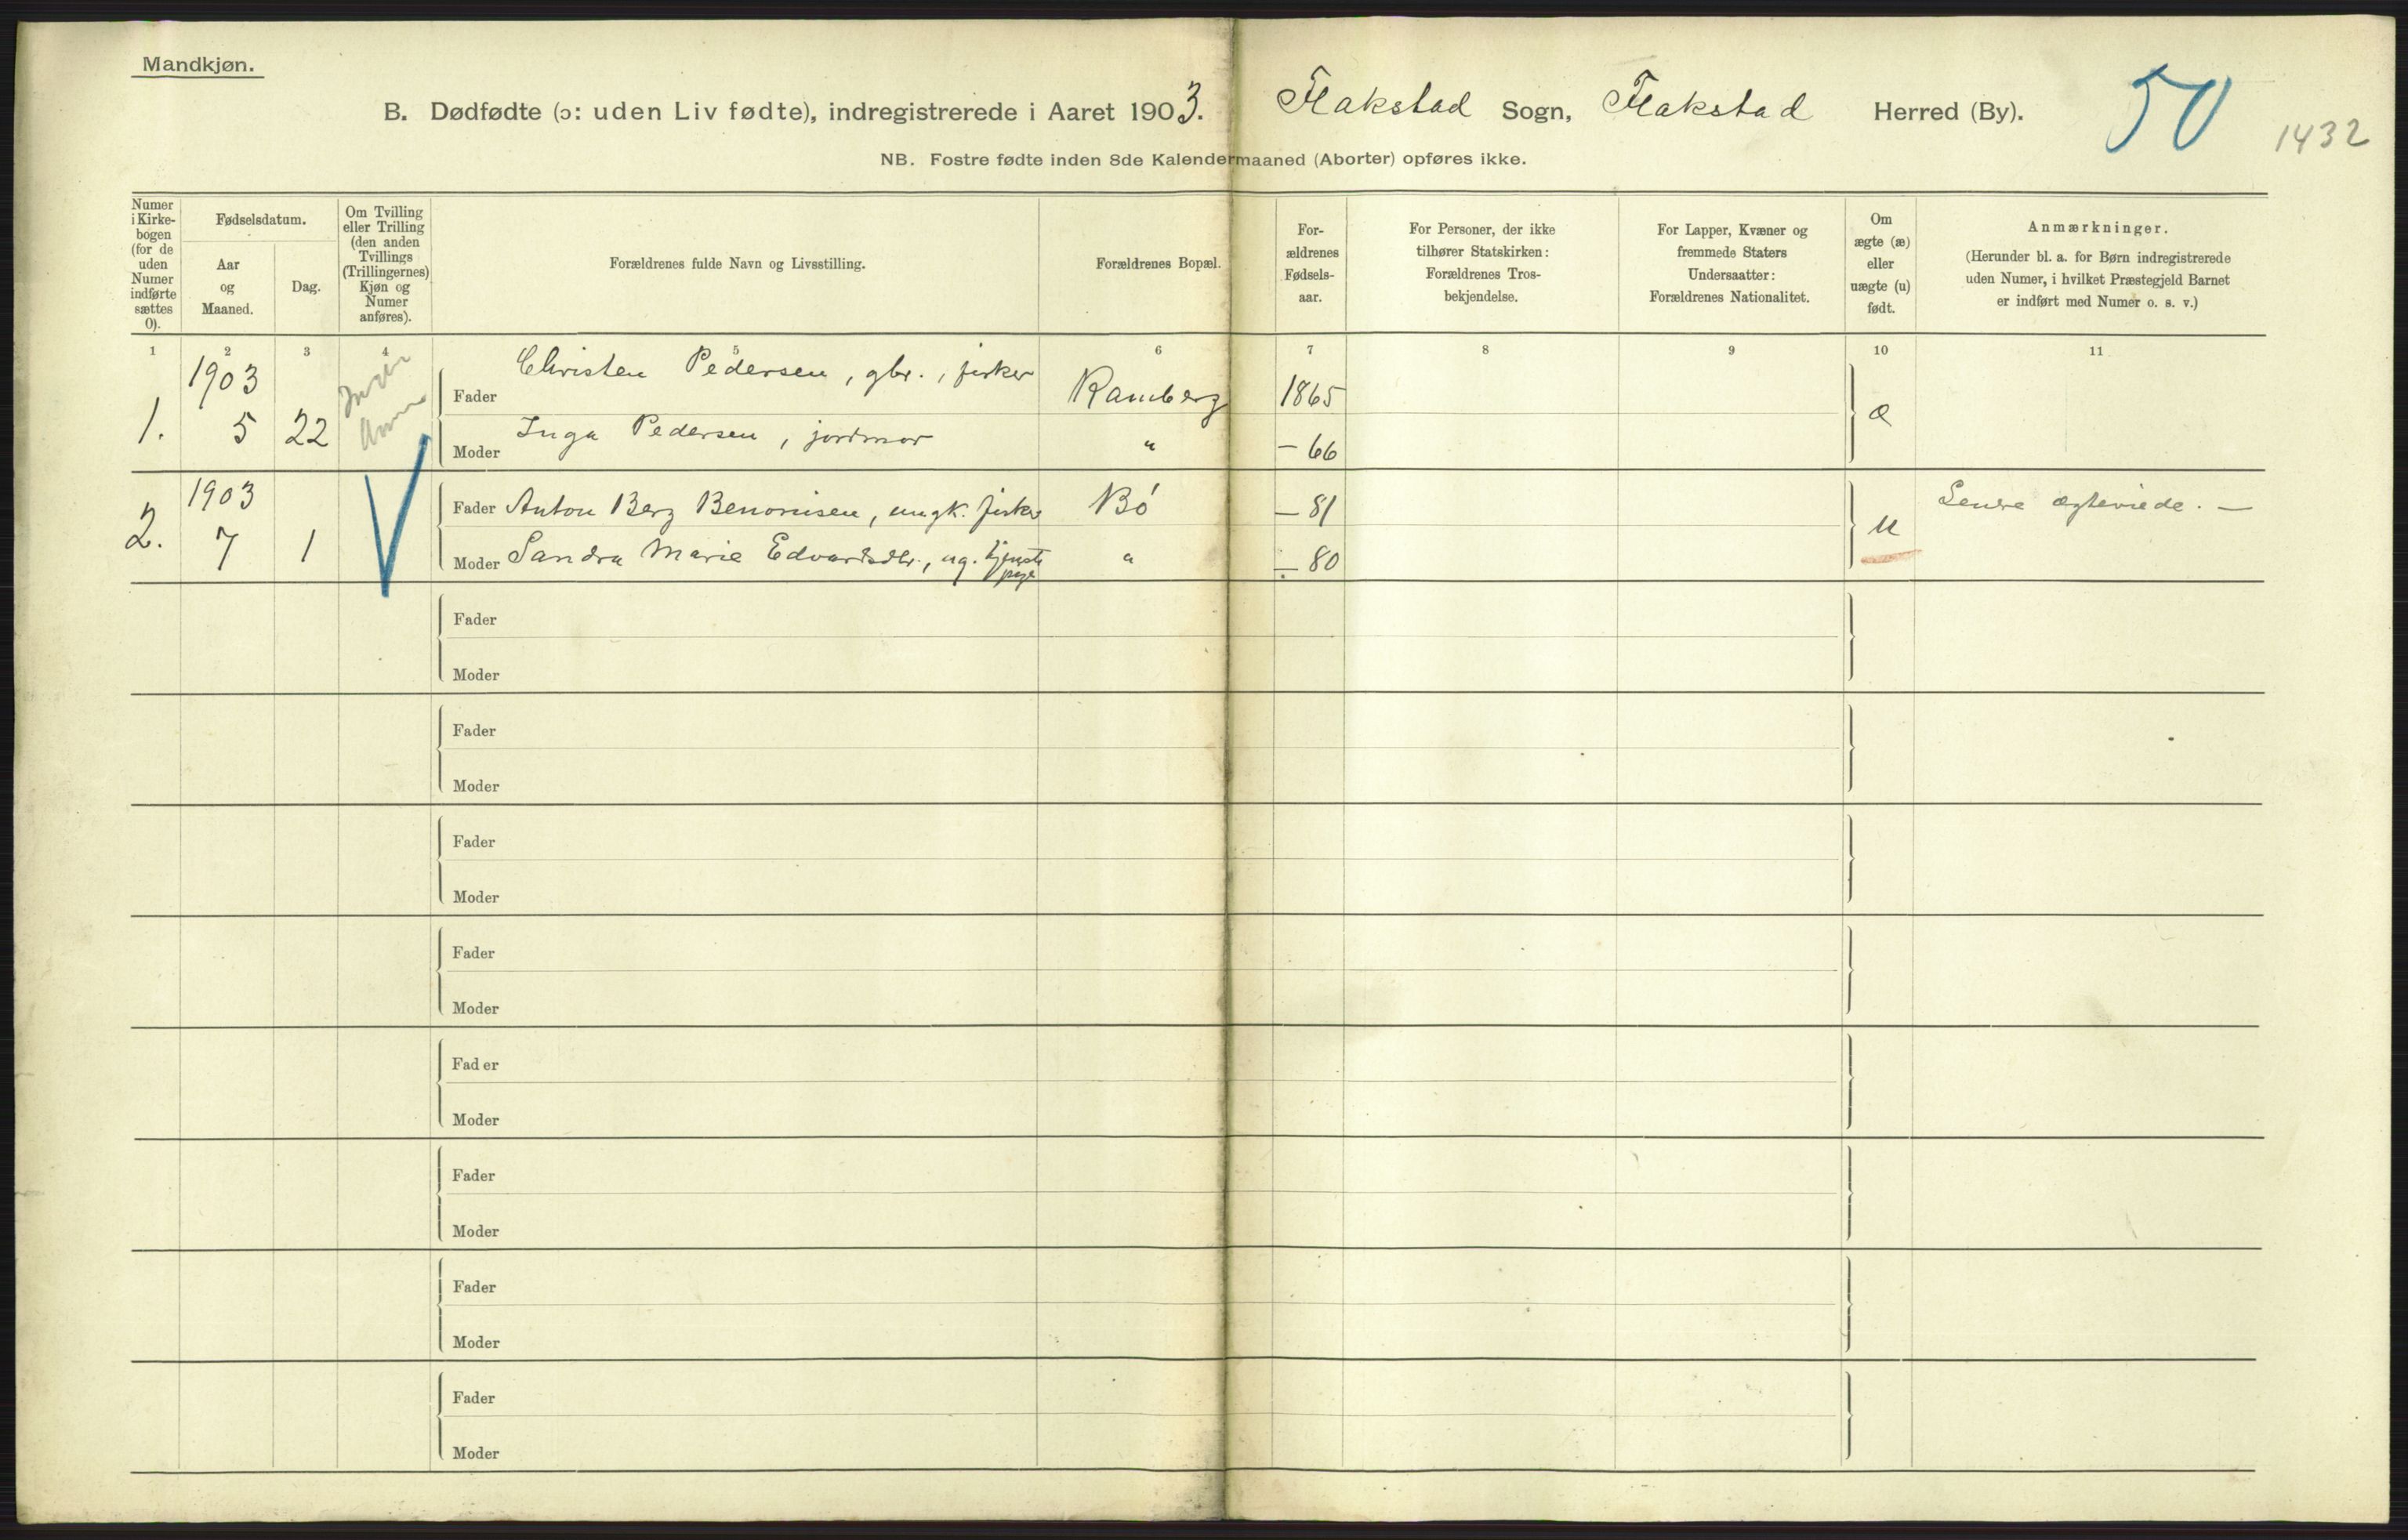 Mandkjøn.
B. Dødfødte (ɔ: uden Liv fødte), indregistrerede i Aaret 1903. Flakstad Sogn, Flakstad Herred (By).
50
1432
NB. Fostre fødte inden 8de Kalendermaaned (Aborter) opføres ikke.
Numer
i Kirke-
bogen
(for de
uden
Numer
indførte
sættes
0).
Fødselsdatum.
Aar
og
Maaned.
Dag.
Om Tvilling
eller Trilling
(den anden
Tvillings
(Trillingernes)
Kjøn og
Numer
anføres).
Forældrenes fulde Navn og Livsstilling.
Forældrenes Bopæl.
For-
ældrenes
Fødsels-
aar.
For Personer, der ikke
tilhører Statskirken:
Forældrenes Tros-
bekjendelse.
For Lapper, Kvæner og
fremmede Staters
Undersaatter:
Forældrenes Nationalitet.
Om
ægte (æ)
eller
uægte (u)
født.
Anmærkninger.
(Herunder bl. a. for Børn indregistrerede
uden Numer, i hvilket Præstegjeld Barnet
er indført med Numer o. s. v.)
1 2 3 4 5 6 7 8 9 10 11
1903
1. 5 22
Fader Christen Pedersen, gbr., fisker Ramberg 1865
æ
Moder Inga Pedersen, jordmor " - 66
1903
2. 7 1
Fader Anton Berg Benonisen, ungk. fisker Bö - 81
u
Senere ægteviede. -
Moder Sandra Marie Edvardsdtr., ug. tjeneste
pige
" - 80
Fader
Moder
Fader
Moder
Fader
Moder
Fader
Moder
Fader
Moder
Fader
Moder
Fader
Moder
Fader
Moder